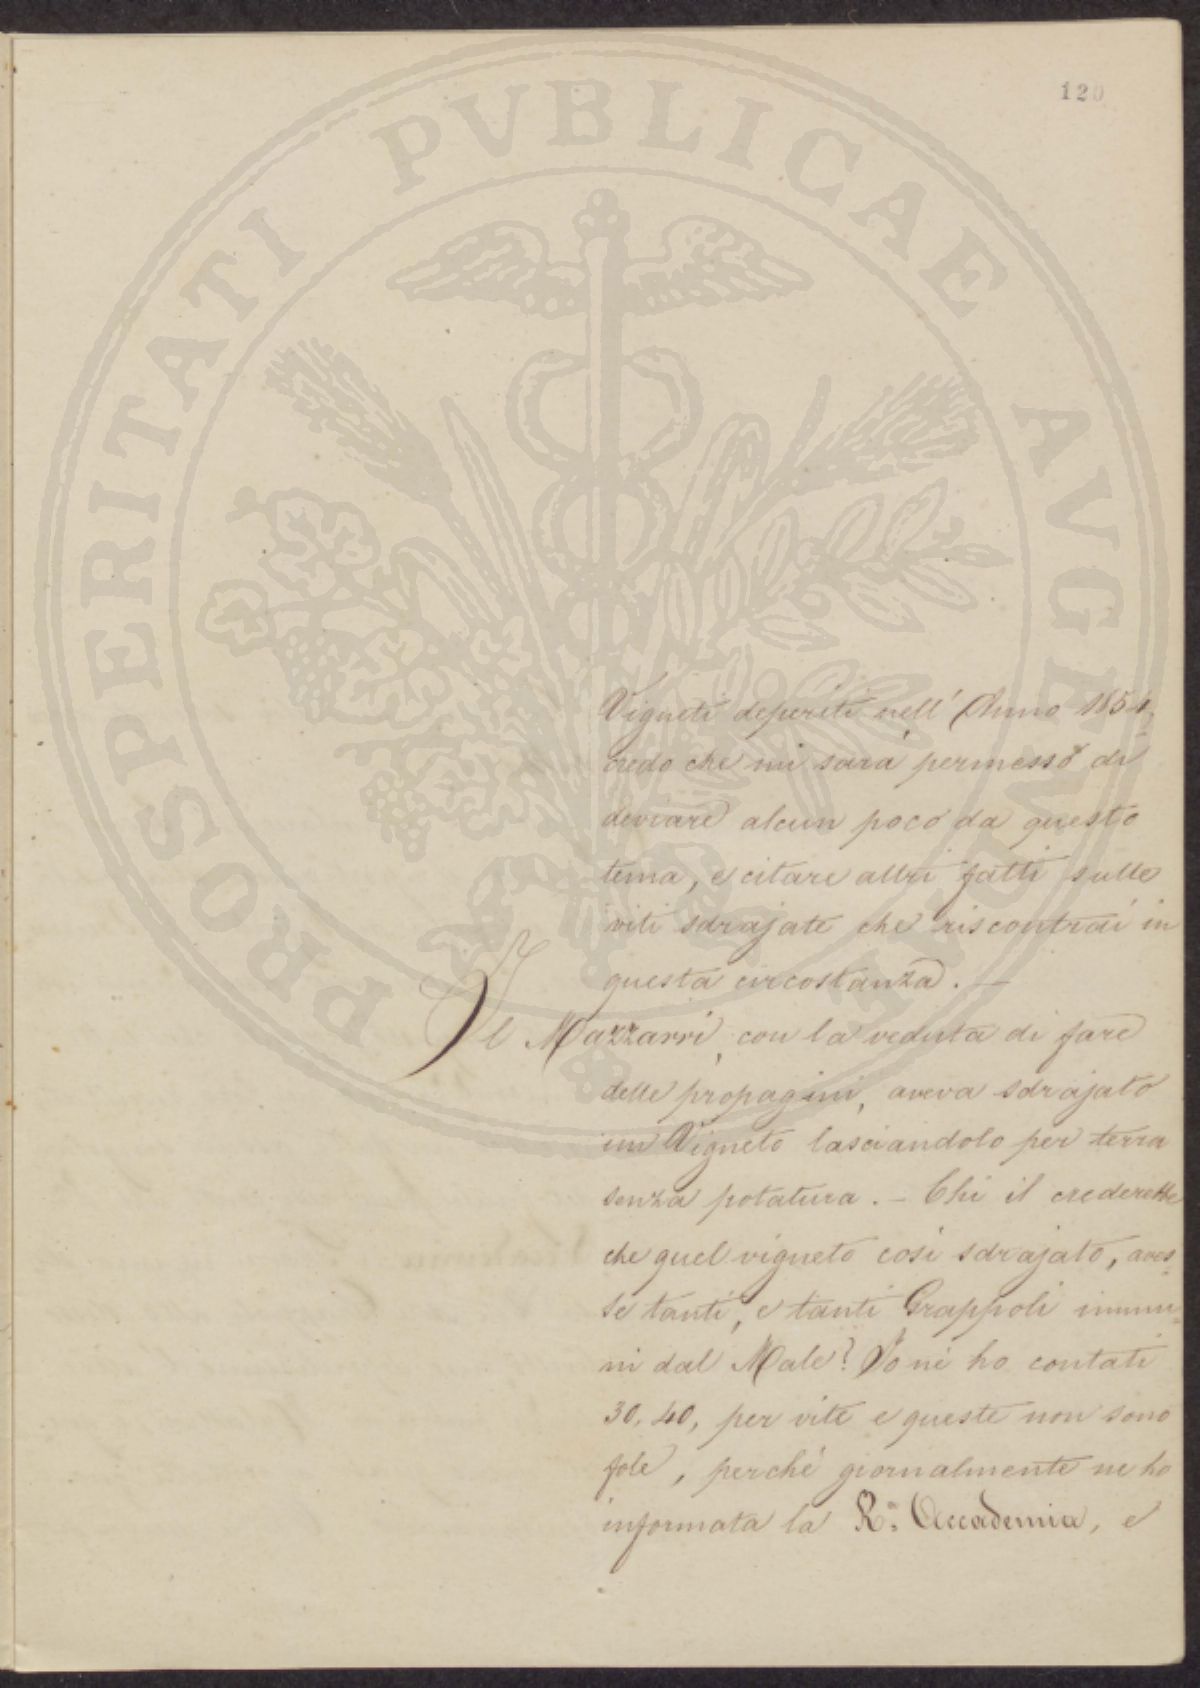 120
PROSPERITATI PUBLICAE AUGENDAE
Vigneti deperiti nell' Anno 1854,
credo che mi sarà permesso di
deviare alcun poco da questo
tema, e citare altri fatti sulle
viti sdrajate che riscontrai in
questa circostanza. —
Il Mazzarri, con la veduta di fare
delle propagini, aveva sdrajato
un Vigneto lasciandolo per terra
senza potatura. – Chi il crederebbe
che quel vigneto così sdrajato, aves=
se tanti, e tanti Grappoli immu=
ni dal Male? Io ne ho contati
30, 40, per vite e queste non sono
fole, perché giornalmente ne ho
informata la R.ª Accademia, e